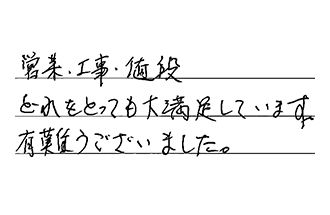 営業・工事・値段
どれをとっても大満足しています。
有難うございました。